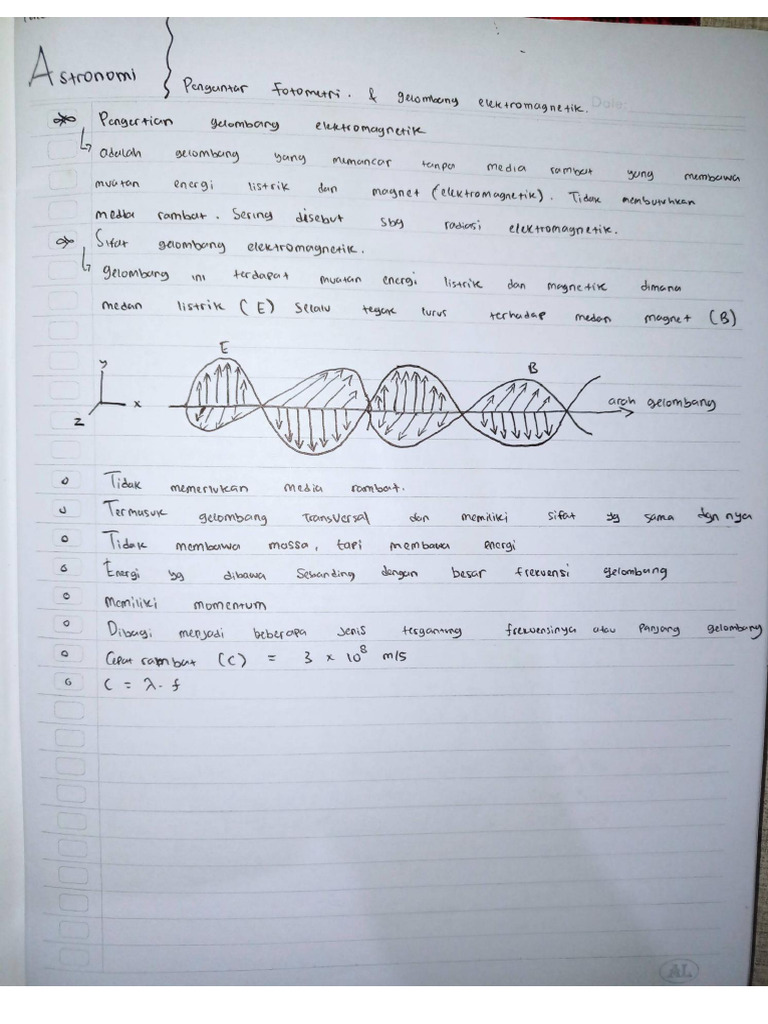 Astronomi
Pengantar Fotometri. & gelombang elektromagnetik.
Date:
Pengertian gelombang elektromagnetik
adalah gelombang yang memancar tanpa media rambat yang membawa
muatan energi listrik dan magnet (elektromagnetik). Tidak membutuhkan
media rambat. Sering disebut sbg radiasi elektromagnetik.
Sifat gelombang elektromagnetik.
gelombang ini terdapat muatan energi listrik dan magnetik dimana
medan listrik (E) selalu tegak lurus terhadap medan magnet (B)
E
B
y
x
z
arah gelombang
Tidak memerlukan media rambat.
Termasuk gelombang Transversal dan memiliki sifat yg sama dgn nya
Tidak membawa massa, tapi membawa energi
Energi yg dibawa sebanding dengan besar frekuensi gelombang
Memiliki momentum
Dibagi menjadi beberapa jenis tergantung frekuensinya atau Panjang gelombang
Cepat rambat (C) = 3 × 10⁸ m/s
C = λ. f
AL